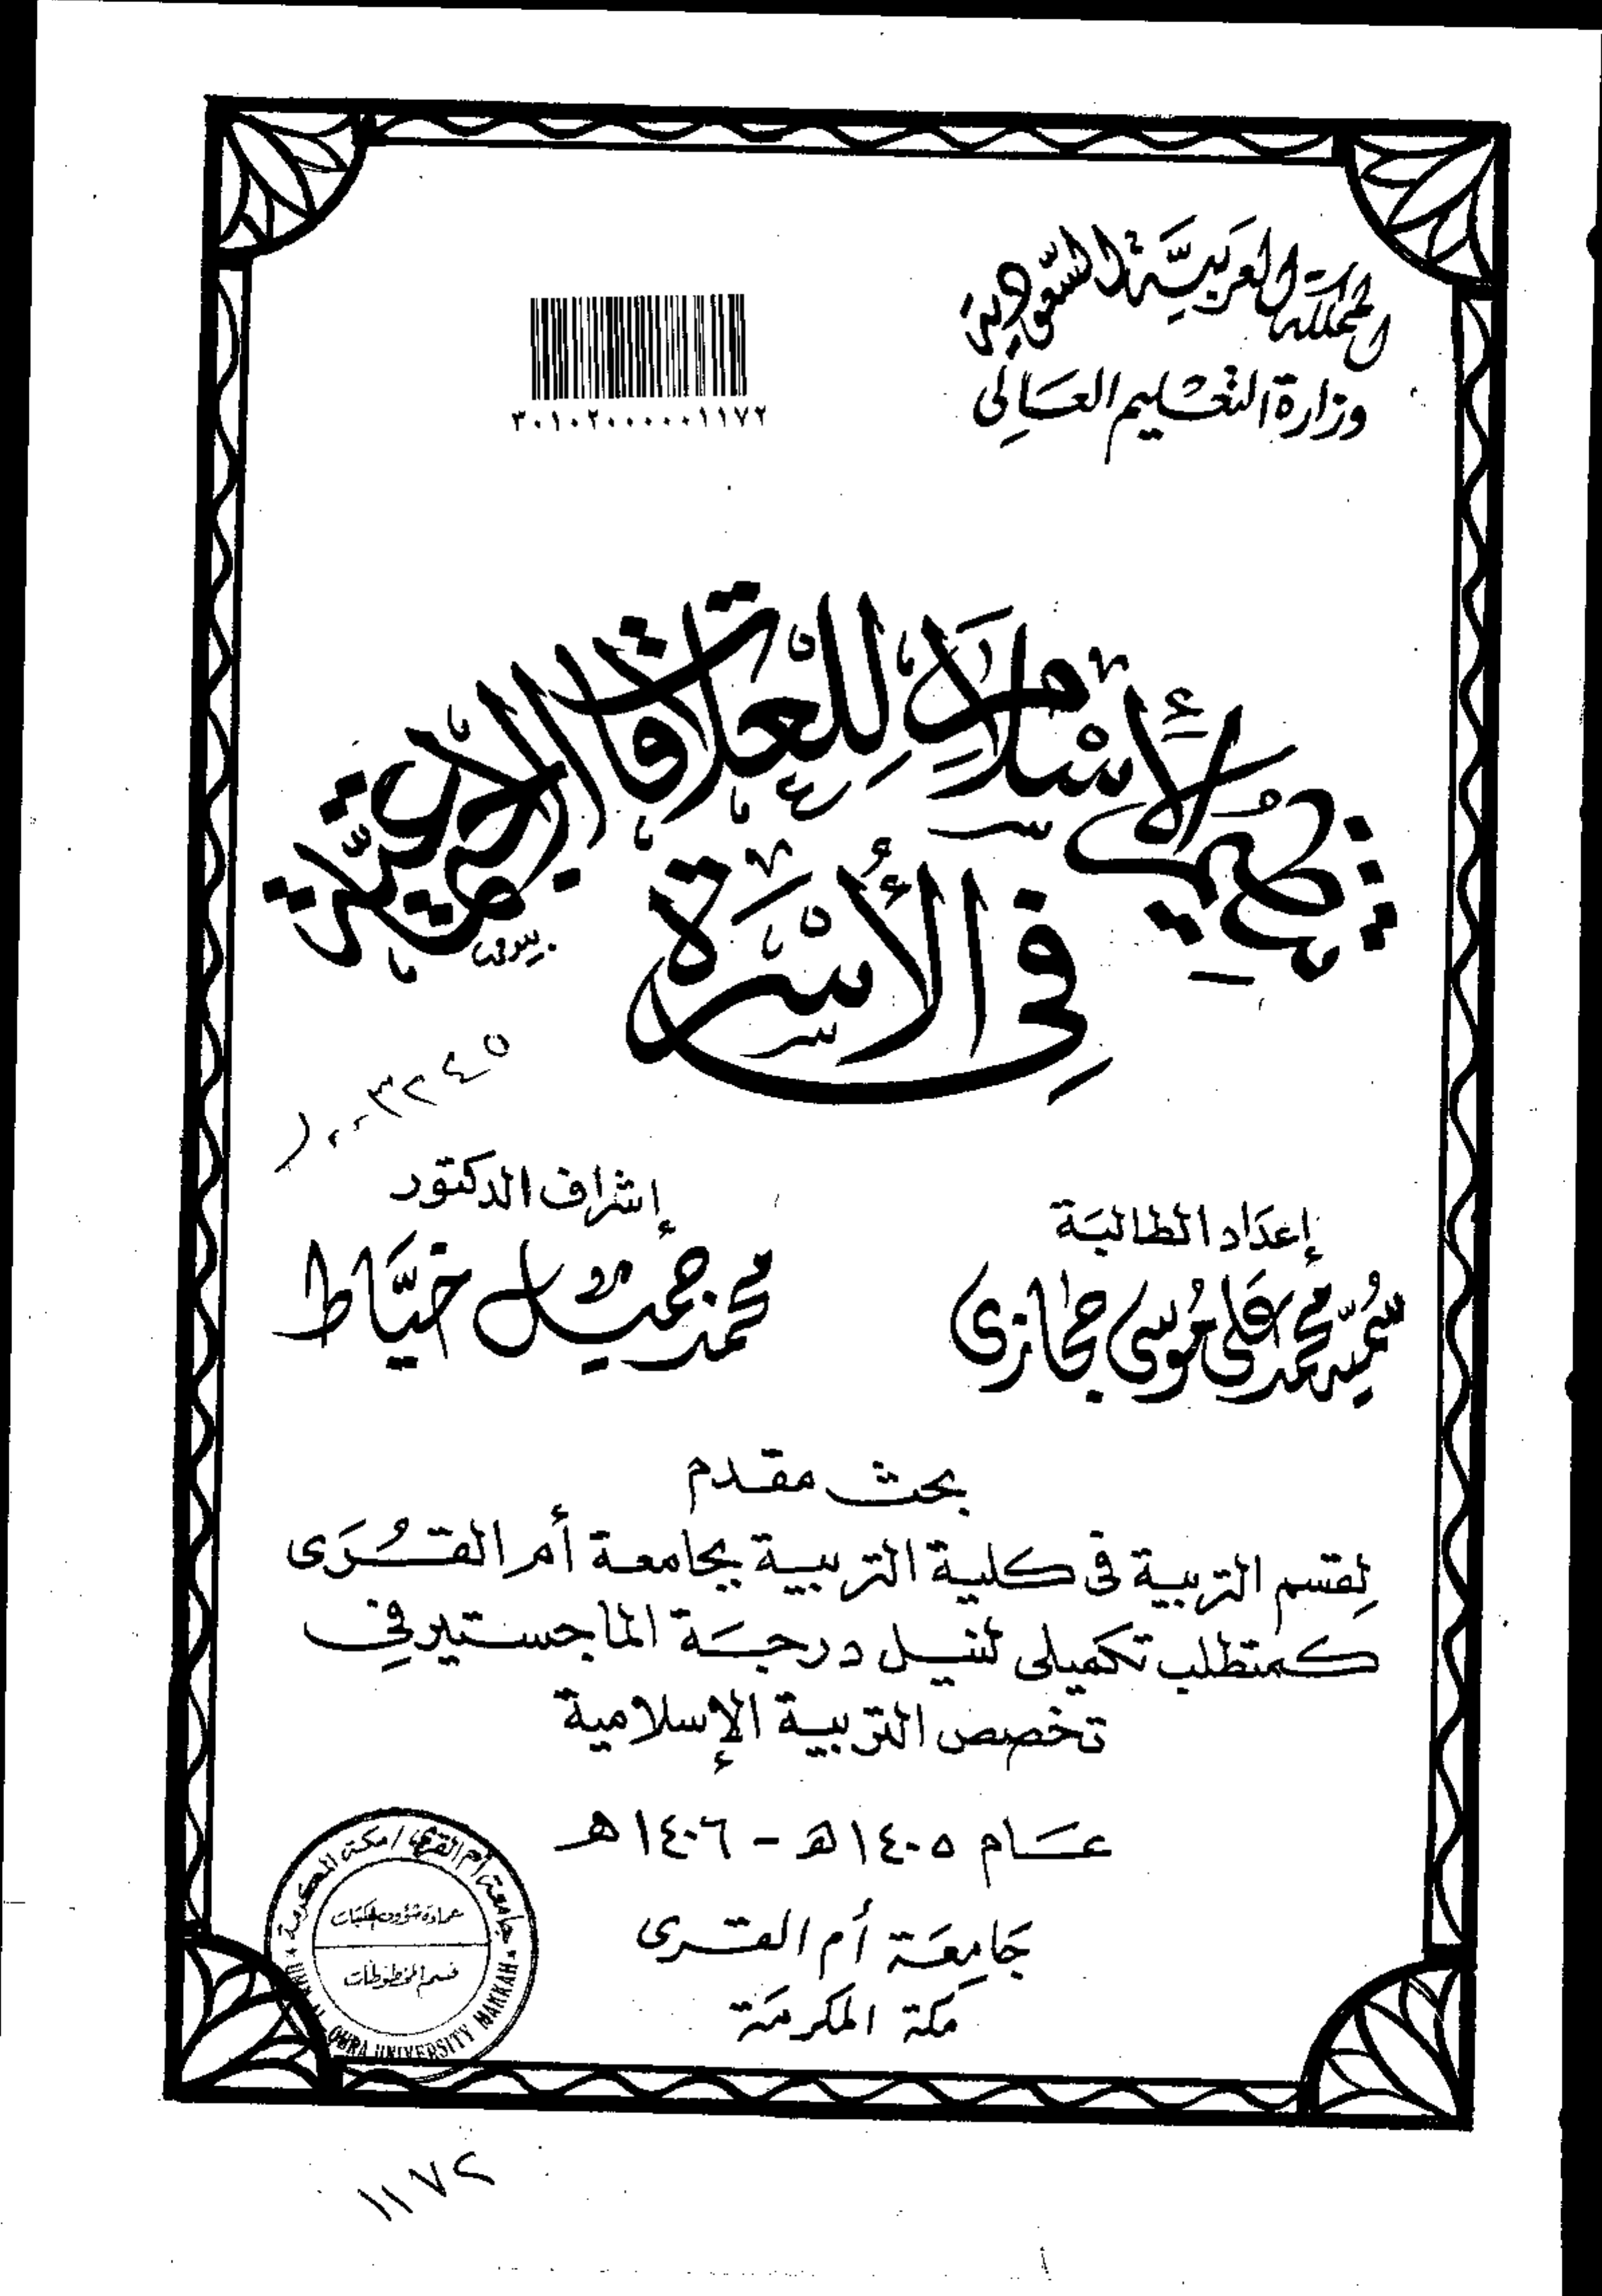 المملكة العربية السعودية
وزارة التعليم العالي
٣٠١٠٢٠٠٠٠٠٠١١٧٢
الإسلام للعلاقات
في الأسرة
١٠٠٣٢٤٥
إعداد الطالبة
سُميه محمد علي مُوسى حجازي
إشراف الدكتور
محمد جميل خيَّاط
بحث مقدم
لِقسم التربية فى كلية التربية بجامعة أم القُرَى
كمتطلب تكميلى لنيل درجة الماجستير في
تخصص التربية الإسلامية
عام ١٤٠٥هـ - ١٤٠٦هـ
جامعة أم القرى
مكة المكرمة
جامعة أم القرى / مكة المكرمة
عمادة شؤون المكتبات
قسم المخطوطات
UMM AL QURA UNIVERSITY MAKKAH
١١٧٢